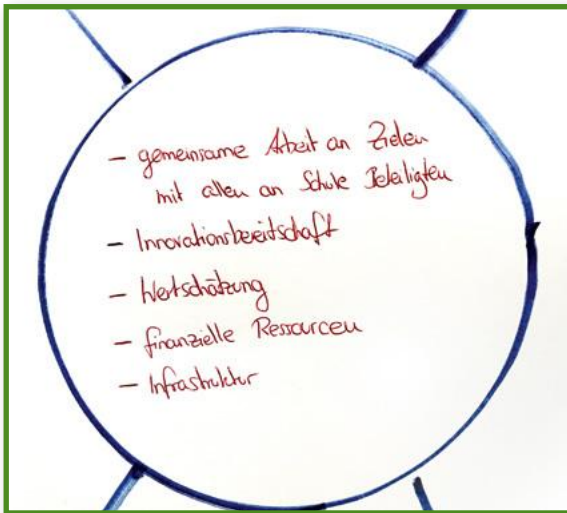 – gemeinsame Arbeit an Zielen
mit allen an Schule Beteiligten
– Innovationsbereitschaft
– Wertschätzung
– finanzielle Ressourcen
– Infrastruktur